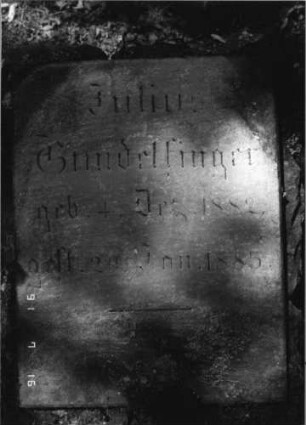 Julius
Gundelfinger
geb. 4. Dez. 1882.
gest. 29. Jan. 1883.
91 7 16